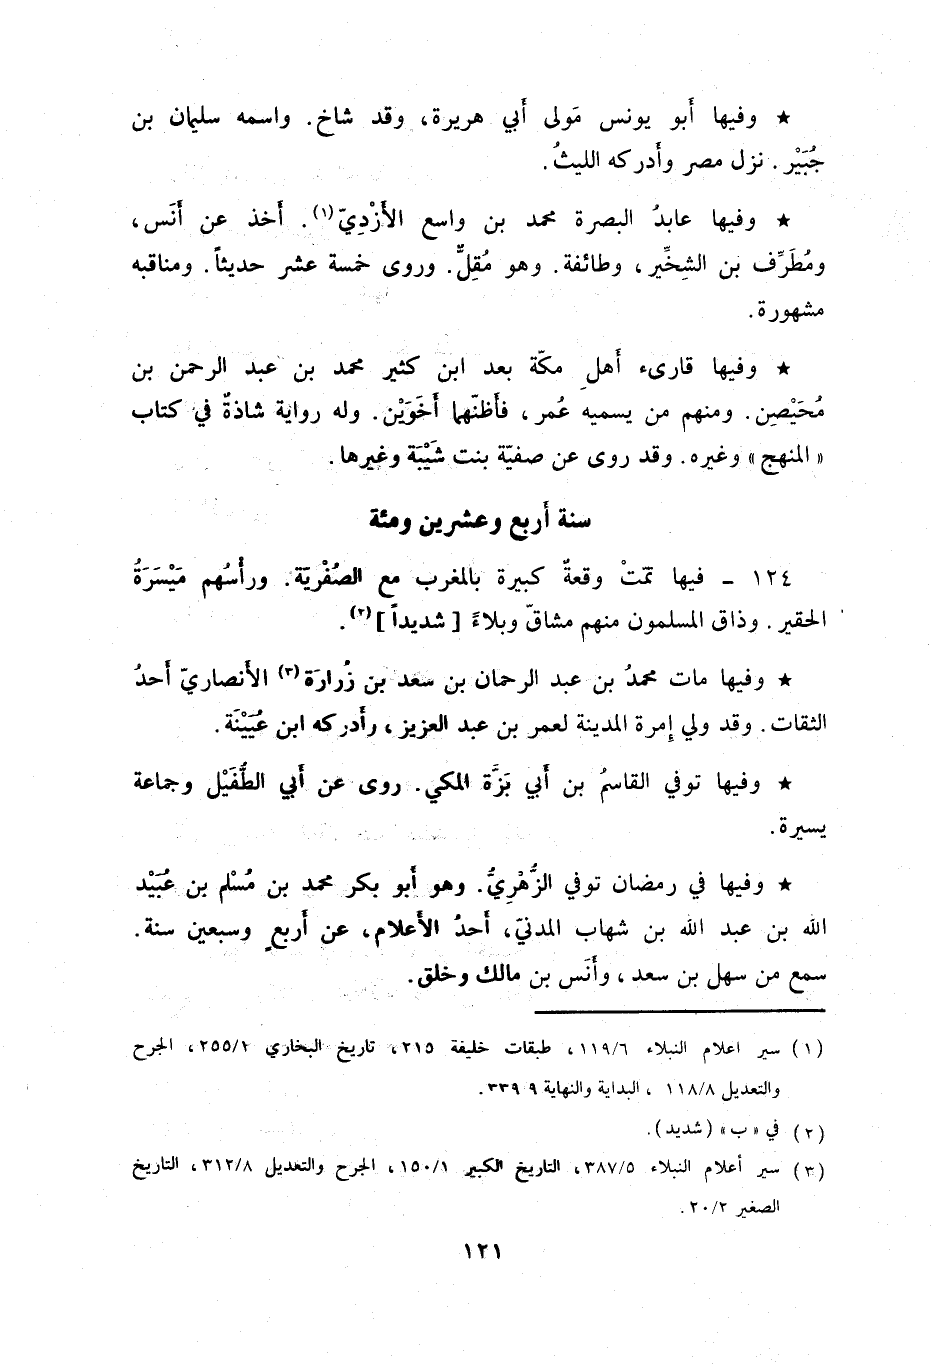 ★ وفيها أَبو يونس مَولى أَبي هريرة، وقد شاخ. واسمه سليمان بن
جُبَيْر. نزل مصر وأَدركه الليثُ.
★ وفيها عابدُ البصرة محمد بن واسع الأَزْدِيّ(١). أَخذ عن أَنَس،
ومُطَرِّف بن الشِخِّير، وطائفة. وهو مُقِلٌّ. وروى خمسة عشر حديثاً. ومناقبه
مشهورة.
★ وفيها قارىء أَهلِ مكّة بعد ابن كثير محمد بن عبد الرحمن بن
مُحَيْصِن. ومنهم من يسميه عُمر، فأَظنّهما أَخَوَيْن. وله رواية شاذةٌ في كتاب
« المنهج » وغيره. وقد روى عن صفيّة بنت شَيْبَة وغيرها.
سنة أَربع وعشرين ومئة
١٢٤ ـ فيها تمّتْ وقعةٌ كبيرة بالمغرب مع الصُفْريّة. ورأْسُهم مَيْسَرَةُ
الحقير. وذاق المسلمون منهم مشاقّ وبلاءً [ شديداً ](٢).
★ وفيها مات محمدُ بن عبد الرحمان بن سعد بن زُرارَة(٣) الأَنصاريّ أَحدُ
الثقات. وقد ولي إِمرة المدينة لعمر بن عبد العزيز، رأَدركه ابن عُيَيْنَة.
★ وفيها توفي القاسمُ بن أَبي بَزَّة المكي. روى عن أَبي الطُّفَيْل وجماعة
يسيرة.
★ وفيها في رمضان توفي الزُّهْرِيُّ. وهو أَبو بكر محمد بن مُسْلم بن عُبَيْد
الله بن عبد الله بن شهاب المدنيّ، أَحدُ الأَعلام، عن أَربعٍ وسبعين سنة.
سمع من سهل بن سعد، وأَنَس بن مالك وخلق.
(١) سير اعلام النبلاء ١١٩/٦، طبقات خليفة ٢١٥، تاريخ البخاري ٢٥٥/١، الجرح
والتعديل ١١٨/٨ ، البداية والنهاية ٩ ٣٣٩.
(٢) في « ب » (شديد).
(٣) سير أعلام النبلاء ٣٨٧/٥، التاريخ الكبير ١٥٠/١، الجرح والتعديل ٣١٢/٨، التاريخ
الصغير ٢٠/٢.
١٢١